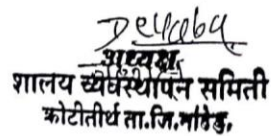 अध्यक्ष
शालेय व्यवस्थापन समिती
कोटीतीर्थ ता.जि.नांदेड.